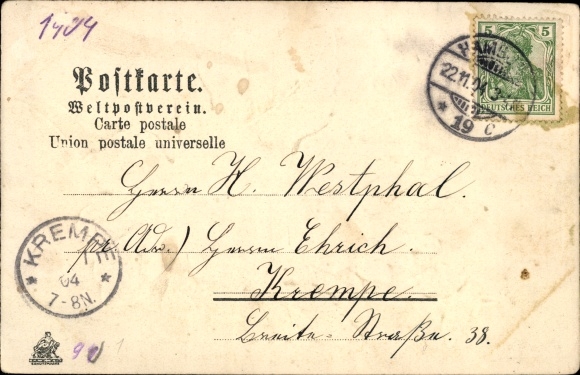 1904
Postkarte.
Weltpostverein.
Carte postale
Union postale universelle
5 5
DEUTSCHES REICH
HAMB
22.11.04.3
* 19 c
Herrn H. Westphal.
pr. Adr. / Herrn Ehrich.
Krempe.
Breite-Straße 38.
KREMPE
04
7-8N.